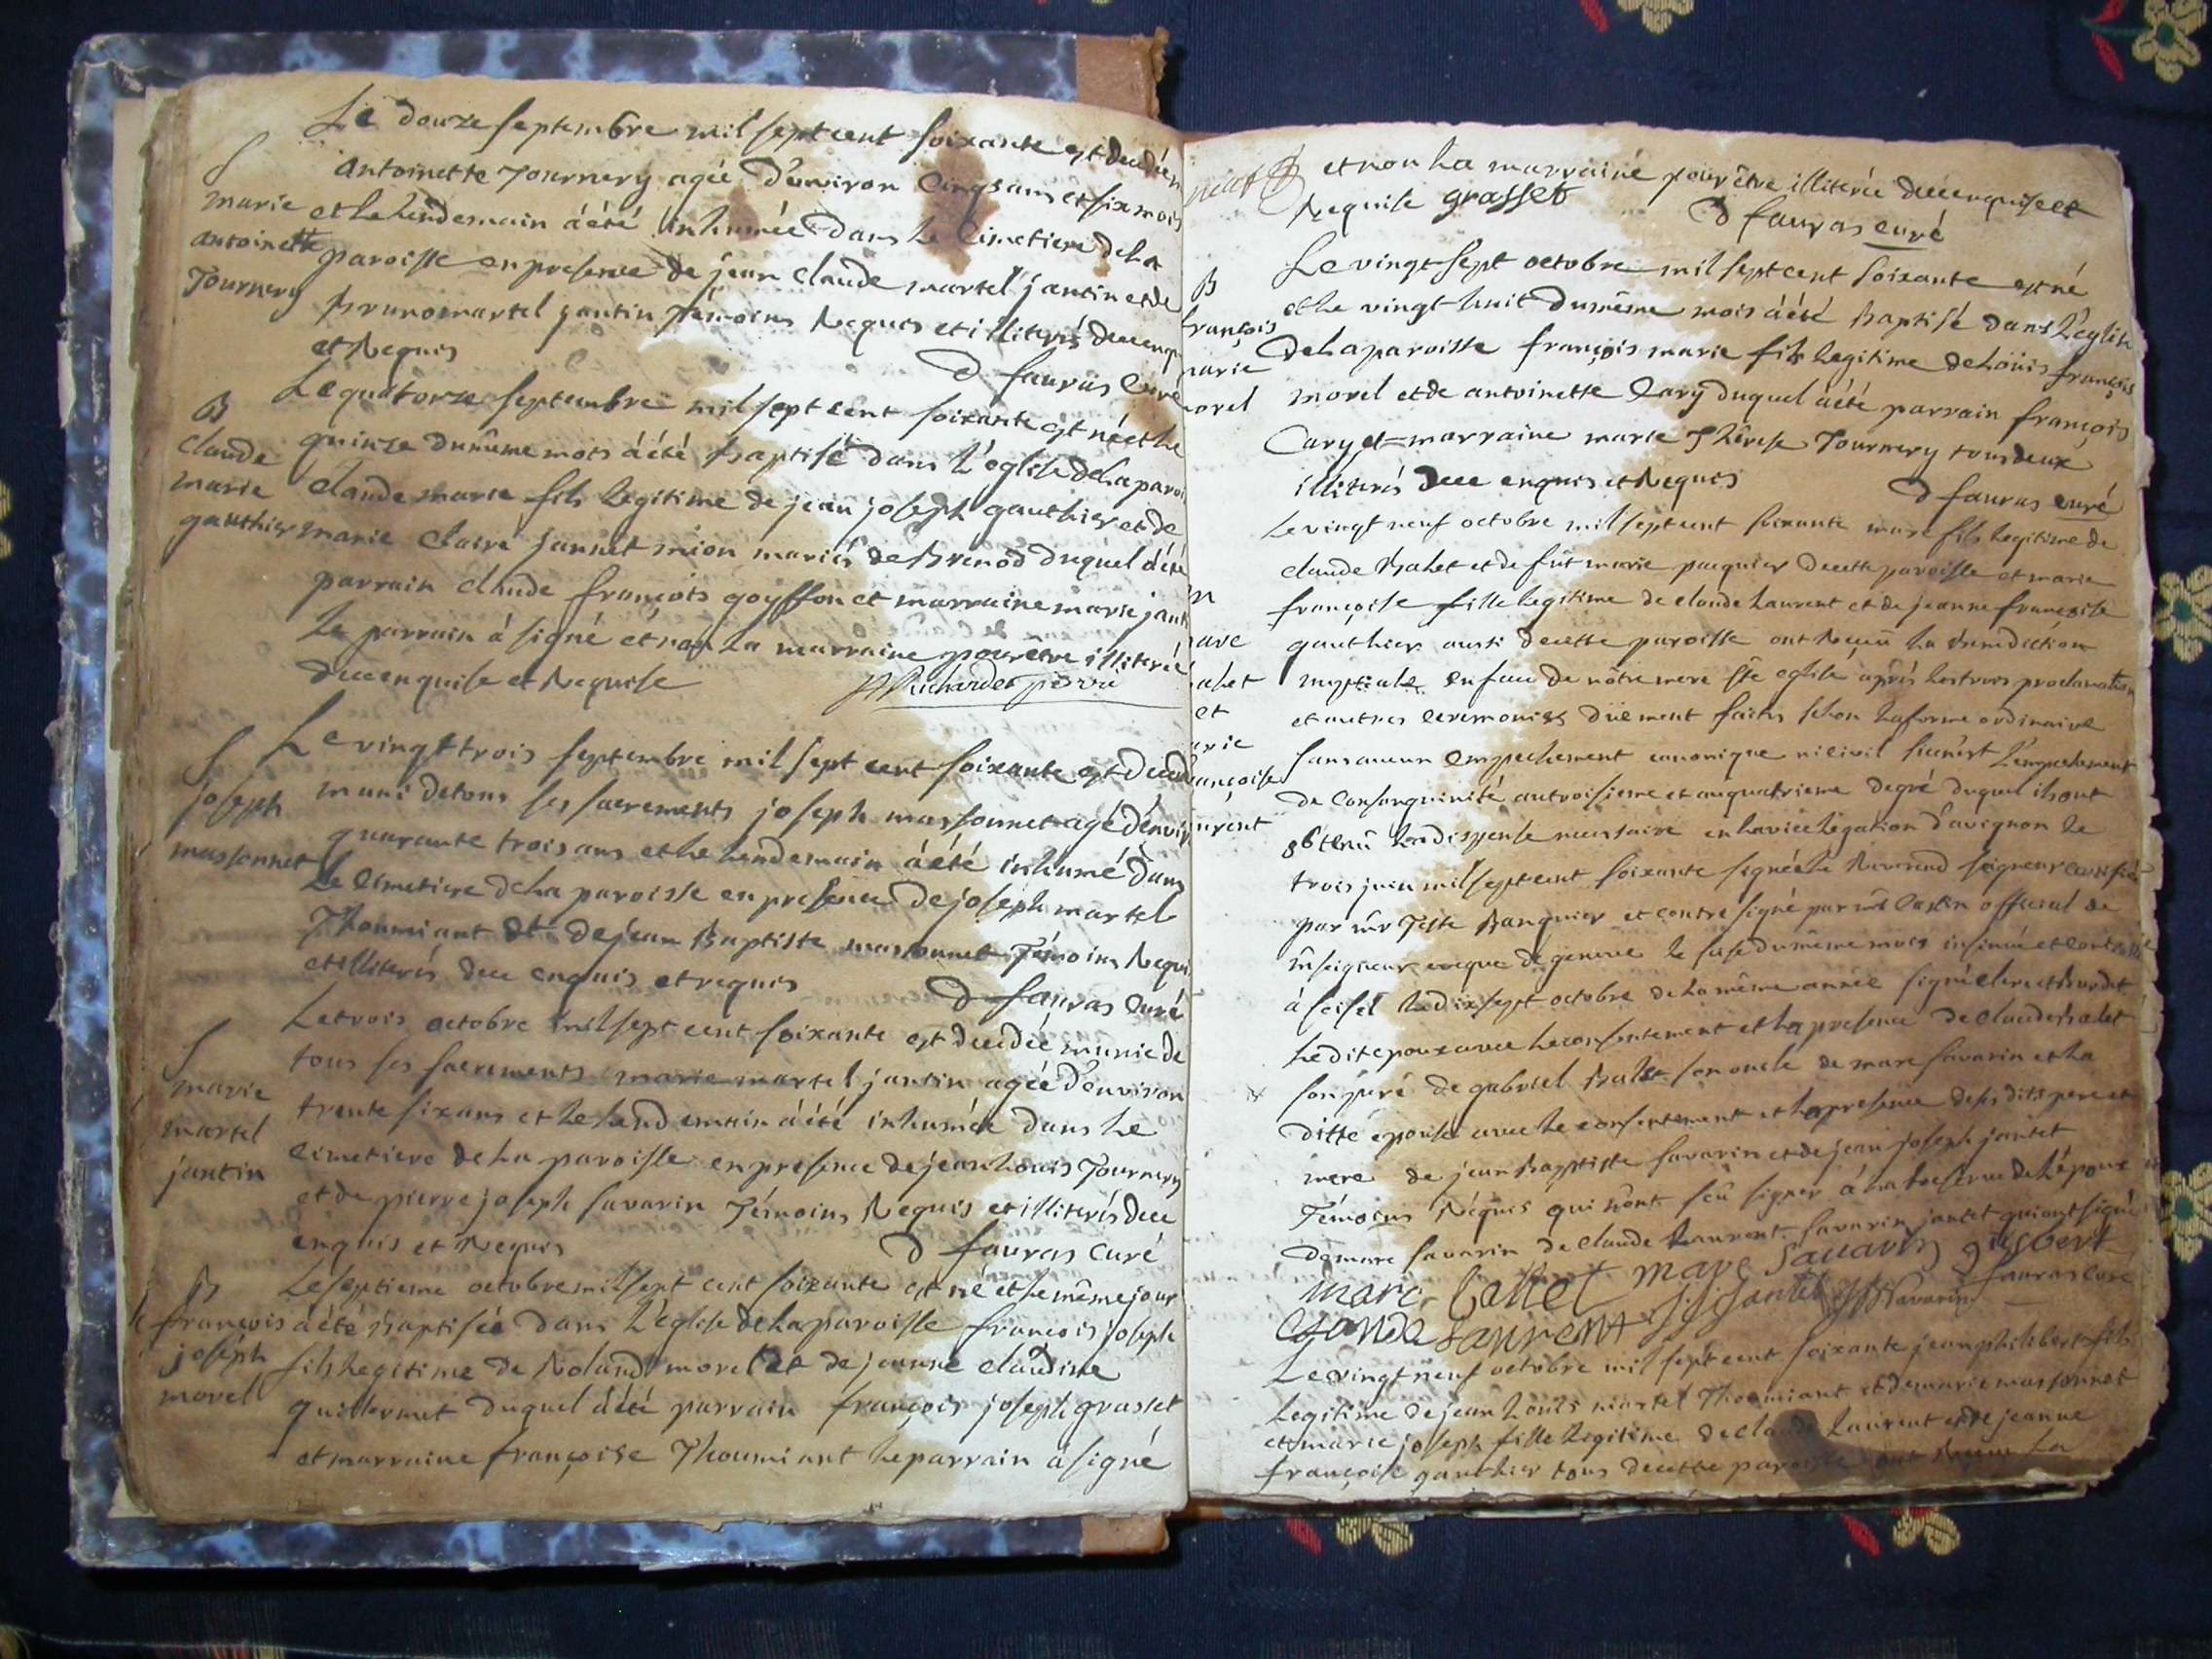 Le douze septembre mil sept cent soixante est decedée
S
marie
antoinette
Tournery
antoinette Tournery agée d'environ cinq ans et six mois
et le lendemain à été inhumée dans le cimetiere de la
paroisse en presence de jean claude martel jantin et de
bruno martel jantin témoins requis et illiterés de ce enquis
et requis
D fauras curé
B
claude
marie
gauthier
Le quatorze septembre mil sept cent soixante est né et le
quinze du même mois à été baptisé dans l'eglise de la paroi
claude marie fils legitime de jean joseph gauthier et de
marie claire jannet mion mariés de brenod duquel à été
parrain claude françois goyffon et marraine marie jant
le parrain à signé et non la marraine pour être illiterée
de ce enquise et requise
S
joseph
massonnet
Le vingt trois septembre mil sept cent soixante est deced
muni de tous ses sacrements joseph massonnet agé d'envir
quarante trois ans et le lendemain à été inhumé dans
le cimetiere de la paroisse en presence de joseph martel
Thoumiant et de jean baptiste massonnet témoins requi
et illiterés de ce enquis et requis
D fauras curé
S
marie
martel
jantin
Le trois octobre mil sept cent soixante est decedée munie de
tous ses sacrements marie martel jantin agée d'environ
trente six ans et le lendemain à été inhumée dans le
cimetiere de la paroisse en presence de jean louis Tournery
et de pierre joseph savarin témoins requis et illiterés de ce
enquis et requis
D fauras curé
B
françois
joseph
morel
Le septieme octobre mil sept cent soixante est né et le même jour
à été baptisé dans l'eglise de la paroisse françois joseph
fils legitime de roland morel et de jeanne claudine
guillermet duquel à été parrain françois joseph grasset
et marraine françoise Thoumiant le parrain à signé
et non la marraine pour être illiterée de ce enquise et
requise grasset
D fauras curé
B
françois
marie
morel
Le vingt sept octobre mil sept cent soixante est né
et le vingt huit du même mois à été baptisé dans l'eglise
de la paroisse françois marie fils legitime de loüis françois
morel et de antoinette Cary duquel à été parrain françois
Cary et marraine marie Thérese Tournery tous deux
illiterés de ce enquis et requis
D fauras curé
Le vingt neuf octobre mil sept cent soixante marc fils legitime de
claude balet et de fût marie paquier de cette paroisse et marie
françoise fille legitime de claude laurent et de jeanne françoise
gauthier aussi de cette paroisse ont reçeu la benediction
nuptiale en face de nôtre mere ste eglise après les trois proclamation
et autres ceremonies düement faites selon la forme ordinaire
sans aucun empechement canonique ni civil si ce n'est l'empechement
de consanguinité au troisieme et au quatrieme degré duquel ils ont
obtenû la dispense necessaire en la vice legation d'avignon le
trois juin mil sept cent soixante signée le reverend seigneur
par mr Teste banquier et contre signé par mr official de
mseigneur eveque de geneve le du même mois insinuée et
à seisel le dix sept octobre de la même année signé
le dit epoux avec le consentement et la presence de claude balet
son pere de gabriel balet son oncle de marc savarin et la
ditte epouse avec le consentement et la presence de ses dits pere et
mere de jean baptiste savarin et de jean joseph jantet
témoins requis qui n'ont sçû signer à la reserve de l'epoux
de marc savarin de claude laurent savarin jantet qui ont signé
marc ballet marc savarin
claude laurent j j jantet savarin fauras curé
Le vingt neuf octobre mil sept cent soixante jean philibert fils
legitime de jean loüis martel Thoumiant et de marie massonnet
et marie joseph fille legitime de claude laurent et de jeanne
françoise gauthier tous de cette paroisse ont reçeu la